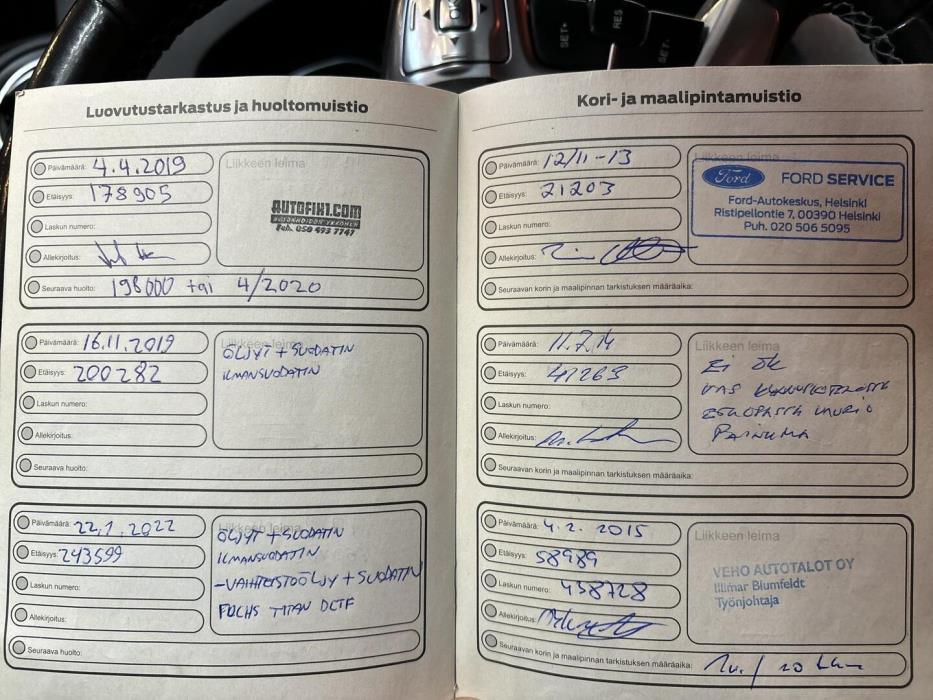 OK
SET+
RES
SET-
Luovutustarkastus ja huoltomuistio
Päivämäärä: 4.4.2019
Liikkeen leima
Etäisyys: 178905
AUTOFIX1.COM
Puh. 050 493 7747
Laskun numero:
Allekirjoitus:
Seuraava huolto: 198000 tai 4/2020
Päivämäärä: 16.11.2019
Liikkeen leima
ÖLJYT + SUODATIN
Etäisyys: 200282
ILMANSUODATIN
Laskun numero:
Allekirjoitus:
Seuraava huolto:
Päivämäärä: 22.1.2022
Liikkeen leima
ÖLJYT + SUODATIN
Etäisyys: 243599
ILMANSUODATIN
-VAIHTEISTOÖLJY + SUODATIN
Laskun numero:
FUCHS TITAN DCTF
Allekirjoitus:
Seuraava huolto:
Kori- ja maalipintamuistio
Päivämäärä: 12/11 -13
Liikkeen leima
Etäisyys: 21203
Ford FORD SERVICE
Ford-Autokeskus, Helsinki
Ristipellontie 7, 00390 Helsinki
Puh. 020 506 5095
Laskun numero:
Allekirjoitus:
Seuraavan korin ja maalipinnan tarkistuksen määräaika:
Päivämäärä: 11.7.14
Liikkeen leima
Ei ok
Etäisyys: 41263
VAS
Laskun numero:
PAINUMA
Allekirjoitus:
Seuraavan korin ja maalipinnan tarkistuksen määräaika:
Päivämäärä: 4.2. 2015
Liikkeen leima
Etäisyys: 58989
VEHO AUTOTALOT OY
Illimar Blumfeldt
Työnjohtaja
Laskun numero: 438728
Allekirjoitus:
Seuraavan korin ja maalipinnan tarkistuksen määräaika: 1v. / 20